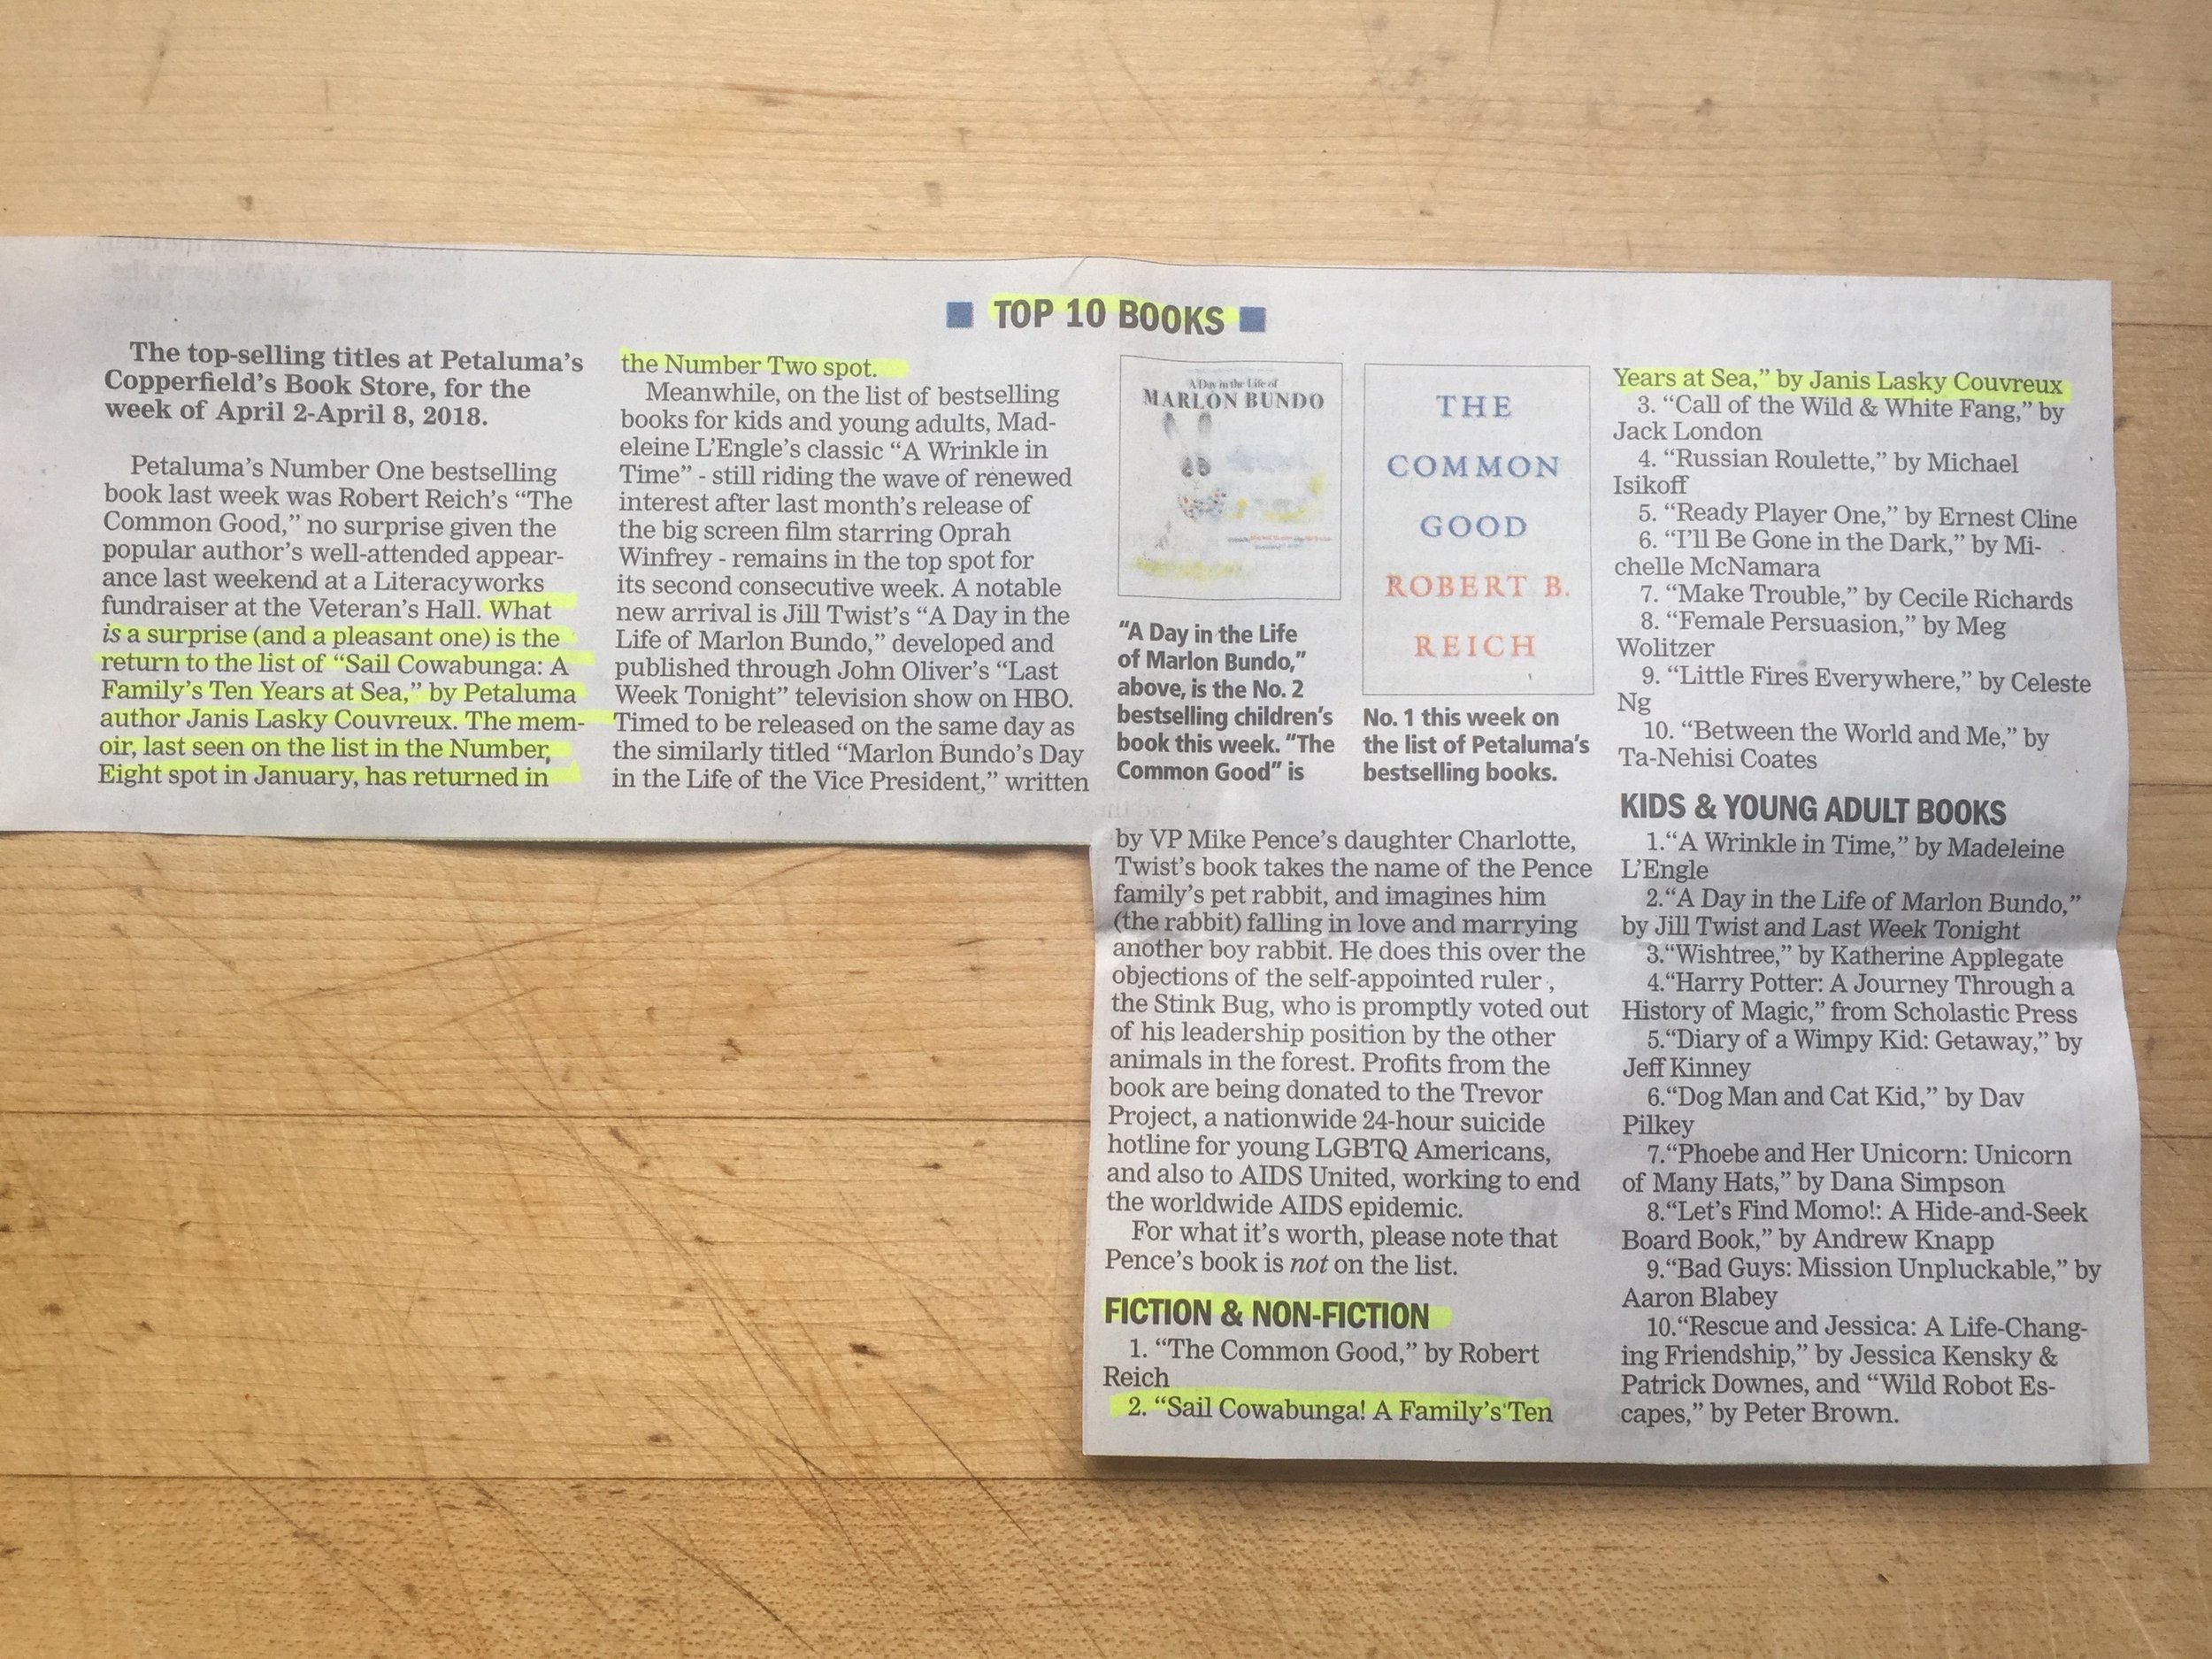 TOP 10 BOOKS
The top-selling titles at Petaluma's
Copperfield's Book Store, for the
week of April 2-April 8, 2018.
Petaluma's Number One bestselling
book last week was Robert Reich's “The
Common Good,” no surprise given the
popular author's well-attended appear-
ance last weekend at a Literacyworks
fundraiser at the Veteran's Hall. What
is a surprise (and a pleasant one) is the
return to the list of “Sail Cowabunga: A
Family's Ten Years at Sea,” by Petaluma
author Janis Lasky Couvreux. The mem-
oir, last seen on the list in the Number
Eight spot in January, has returned in
the Number Two spot.
Meanwhile, on the list of bestselling
books for kids and young adults, Mad-
eleine L'Engle's classic “A Wrinkle in
Time” - still riding the wave of renewed
interest after last month's release of
the big screen film starring Oprah
Winfrey - remains in the top spot for
its second consecutive week. A notable
new arrival is Jill Twist's “A Day in the
Life of Marlon Bundo,” developed and
published through John Oliver's “Last
Week Tonight” television show on HBO.
Timed to be released on the same day as
the similarly titled “Marlon Bundo's Day
in the Life of the Vice President,” written
A Day in the Life of
MARLON BUNDO
“A Day in the Life
of Marlon Bundo,”
above, is the No. 2
bestselling children's
book this week. “The
Common Good” is
THE
COMMON
GOOD
ROBERT B.
REICH
No. 1 this week on
the list of Petaluma's
bestselling books.
by VP Mike Pence's daughter Charlotte,
Twist's book takes the name of the Pence
family's pet rabbit, and imagines him
(the rabbit) falling in love and marrying
another boy rabbit. He does this over the
objections of the self-appointed ruler ,
the Stink Bug, who is promptly voted out
of his leadership position by the other
animals in the forest. Profits from the
book are being donated to the Trevor
Project, a nationwide 24-hour suicide
hotline for young LGBTQ Americans,
and also to AIDS United, working to end
the worldwide AIDS epidemic.
For what it's worth, please note that
Pence's book is not on the list.
FICTION & NON-FICTION
1. “The Common Good,” by Robert
Reich
2. “Sail Cowabunga! A Family's Ten
Years at Sea,” by Janis Lasky Couvreux
3. “Call of the Wild & White Fang,” by
Jack London
4. “Russian Roulette,” by Michael
Isikoff
5. “Ready Player One,” by Ernest Cline
6. “I'll Be Gone in the Dark,” by Mi-
chelle McNamara
7. “Make Trouble,” by Cecile Richards
8. “Female Persuasion,” by Meg
Wolitzer
9. “Little Fires Everywhere,” by Celeste
Ng
10. “Between the World and Me,” by
Ta-Nehisi Coates
KIDS & YOUNG ADULT BOOKS
1.“A Wrinkle in Time,” by Madeleine
L'Engle
2.“A Day in the Life of Marlon Bundo,”
by Jill Twist and Last Week Tonight
3.“Wishtree,” by Katherine Applegate
4.“Harry Potter: A Journey Through a
History of Magic,” from Scholastic Press
5.“Diary of a Wimpy Kid: Getaway,” by
Jeff Kinney
6.“Dog Man and Cat Kid,” by Dav
Pilkey
7.“Phoebe and Her Unicorn: Unicorn
of Many Hats,” by Dana Simpson
8.“Let's Find Momo!: A Hide-and-Seek
Board Book,” by Andrew Knapp
9.“Bad Guys: Mission Unpluckable,” by
Aaron Blabey
10.“Rescue and Jessica: A Life-Chang-
ing Friendship,” by Jessica Kensky &
Patrick Downes, and “Wild Robot Es-
capes,” by Peter Brown.